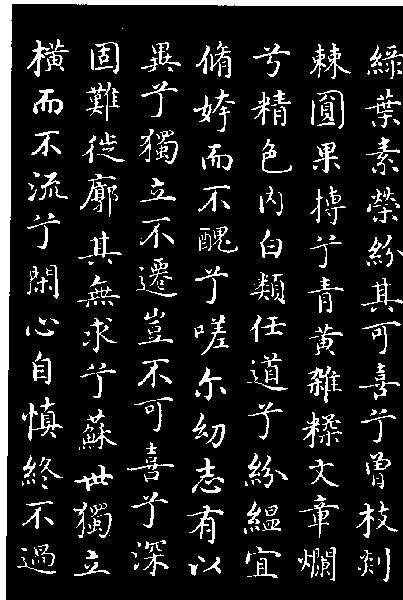 綠葉素榮紛其可喜兮曾枝剡
棘圓果摶兮青黃雜糅文章爛
兮精色內白類任道兮紛縕宜
脩姱而不醜兮嗟尒幼志有以
異兮獨立不遷豈不可喜兮深
固難徙廓其無求兮蘇世獨立
橫而不流兮閉心自慎終不過